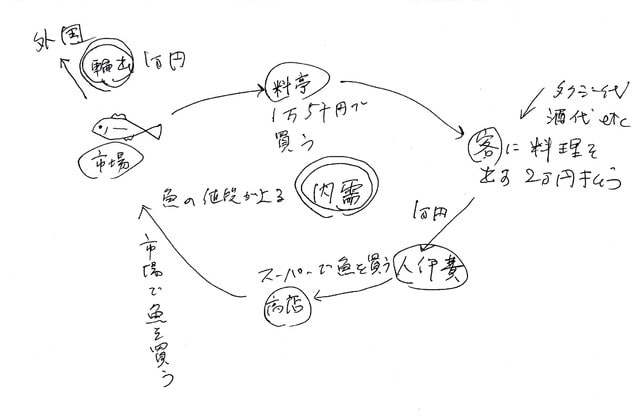 外国
輸出 1万円
市場
料亭
1万5千円で
買う
タクシー代
酒代 etc
客に料理を
出す 2万円もらう
内需
魚の値段が上る
1万円
人件費
スーパーで魚を買う
商店
市場で魚を買う